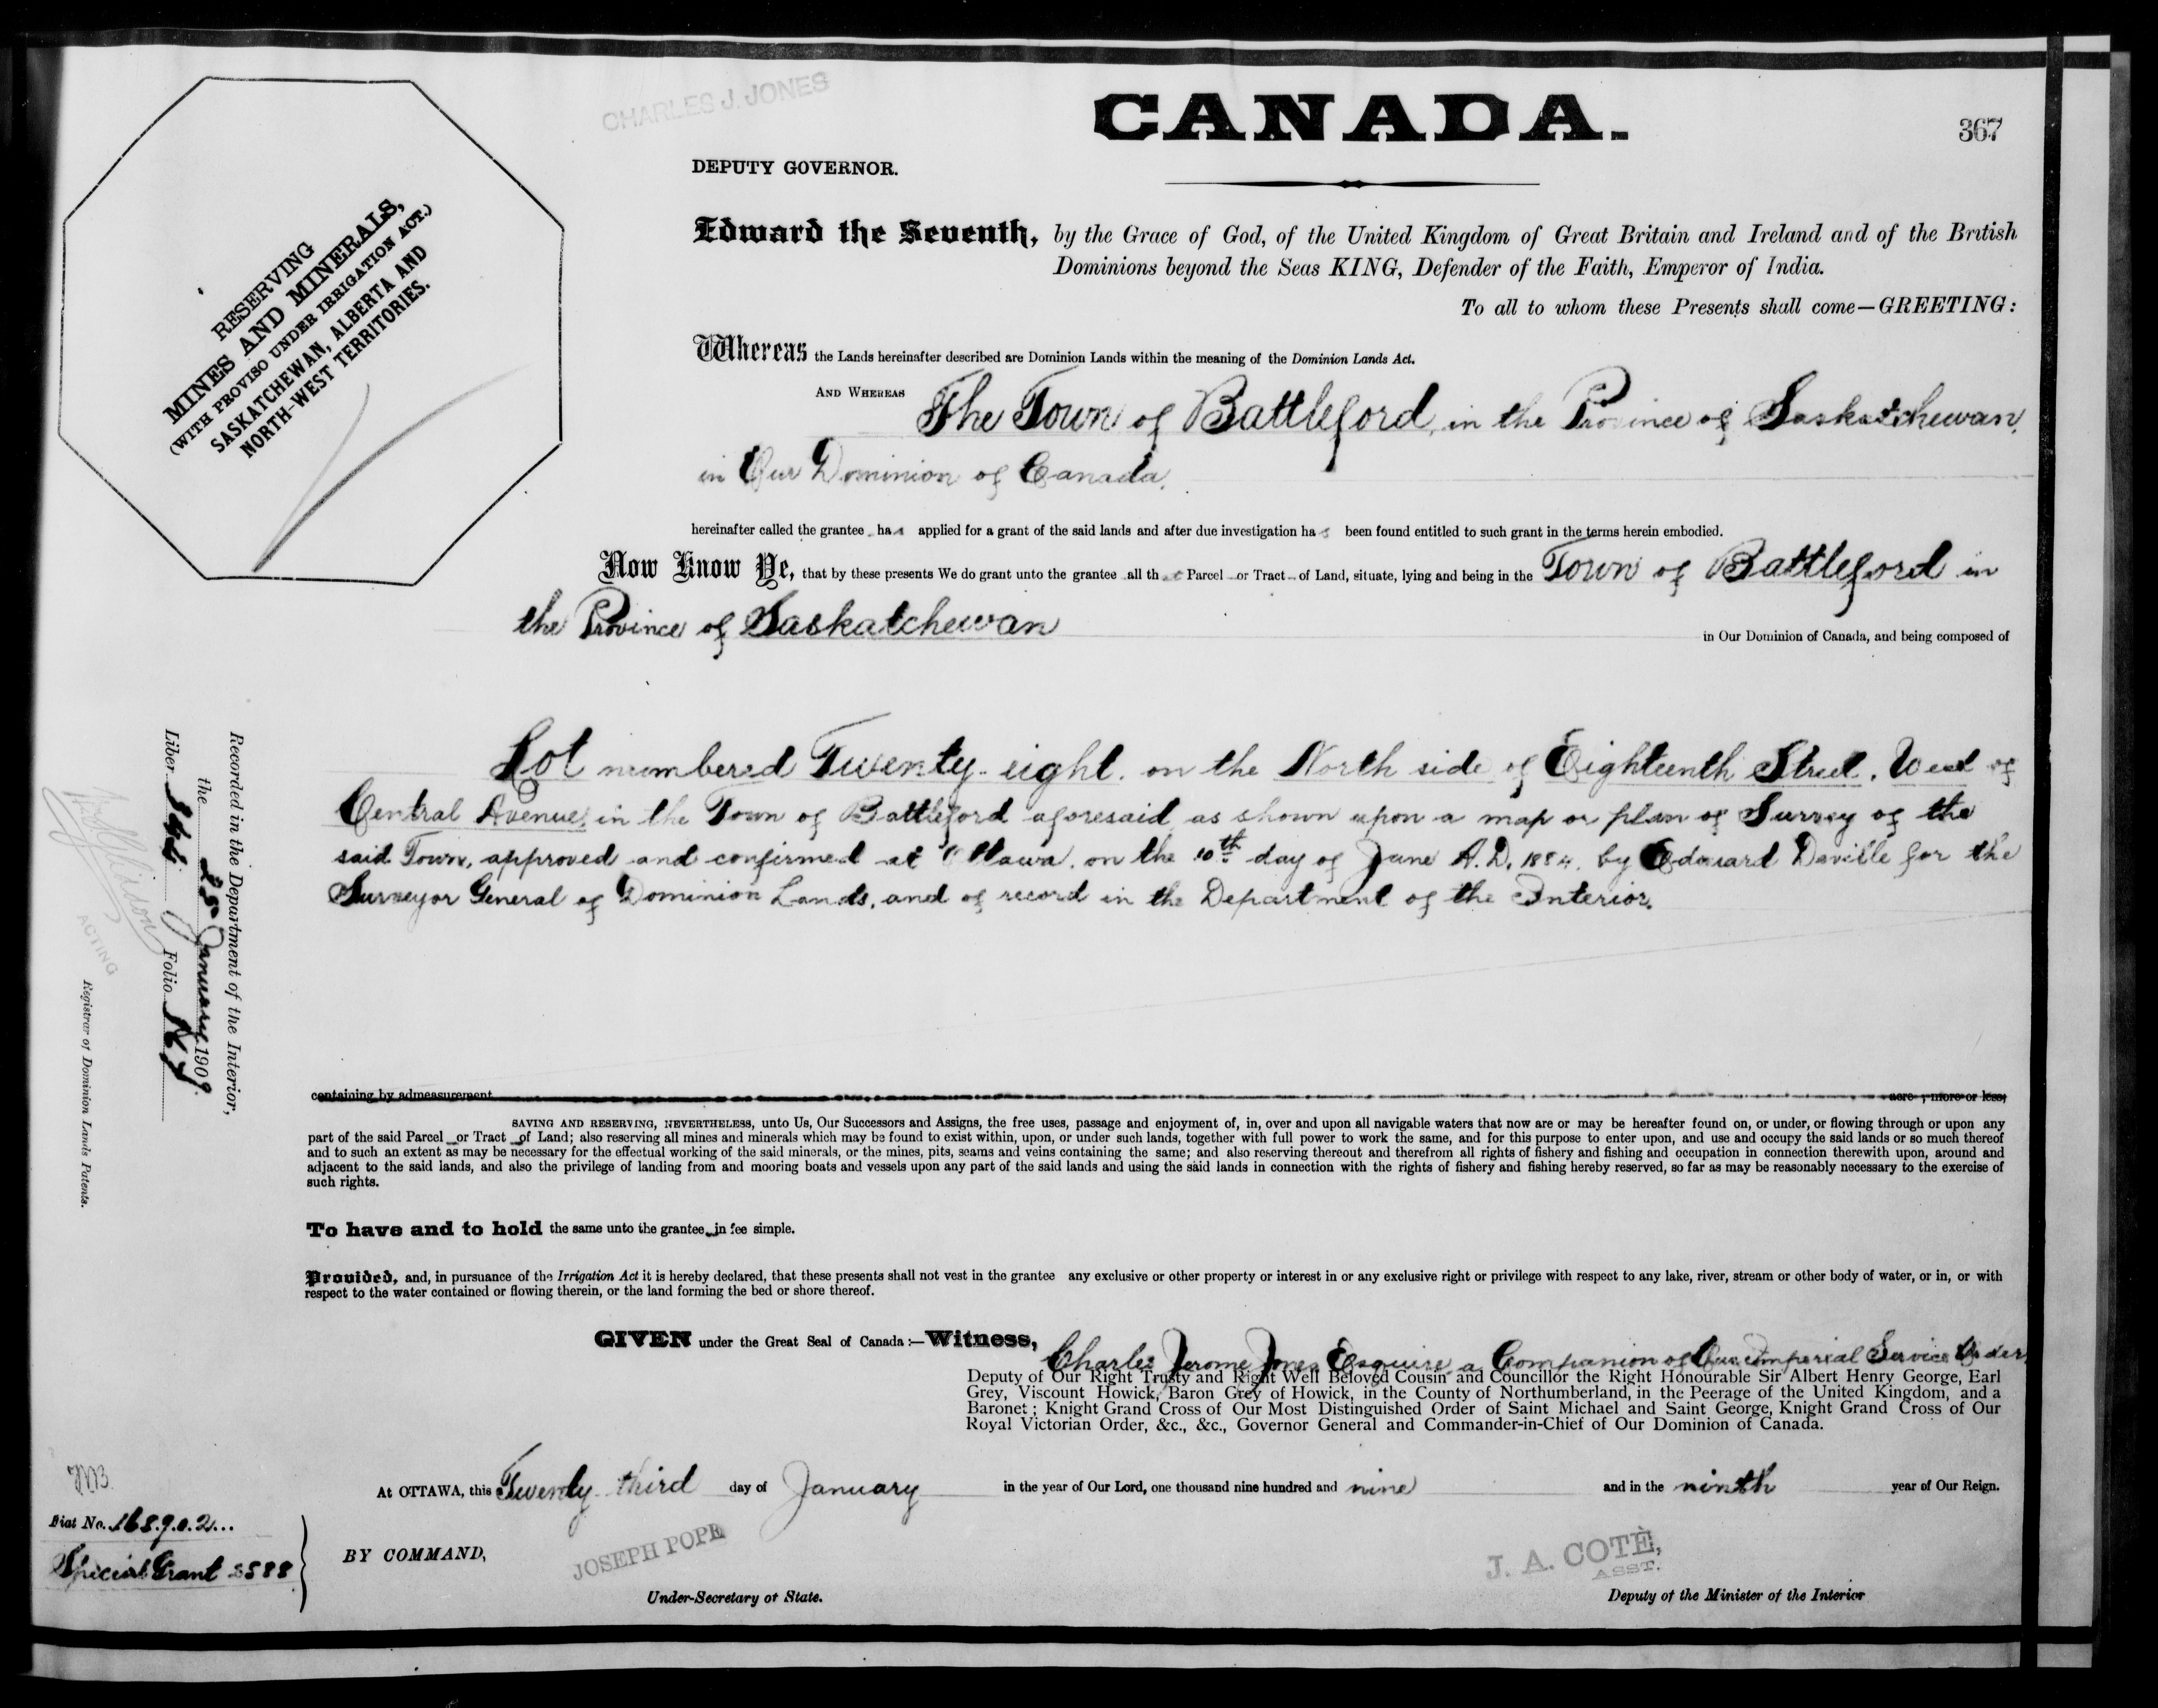 CHARLES J. JONES
CANADA.
367
DEPUTY GOVERNOR.
RESERVING
MINES AND MINERALS,
(WITH PROVISO UNDER IRRIGATION ACT.)
SASKATCHEWAN, ALBERTA AND
NORTH-WEST TERRITORIES.
Edward the Seventh, by the Grace of God, of the United Kingdom of Great Britain and Ireland and of the British
Dominions beyond the Seas KING, Defender of the Faith, Emperor of India.
To all to whom these Presents shall come—GREETING:
Whereas the Lands hereinafter described are Dominion Lands within the meaning of the Dominion Lands Act.
AND WHEREAS The Town of Battleford, in the Province of Saskatchewan,
in Our Dominion of Canada,
hereinafter called the grantee has applied for a grant of the said lands and after due investigation has been found entitled to such grant in the terms herein embodied.
Now Know Ye, that by these presents We do grant unto the grantee all that Parcel or Tract of Land, situate, lying and being in the Town of Battleford in
the Province of Saskatchewan
in Our Dominion of Canada, and being composed of
Lot numbered Twenty-eight, on the North side of Eighteenth Street, West of
Central Avenue, in the Town of Battleford aforesaid as shown upon a map or plan of Survey of the
said Town, approved and confirmed at Ottawa, on the 10th day of June A.D. 1884, by Edouard Deville for the
Surveyor General of Dominion Lands, and of record in the Department of the Interior.
Recorded in the Department of the Interior,
the 25 January 1909.
Liber Folio
ACTING
Registrar of Dominion Lands Patents.
containing by admeasurement acre , more or less;
SAVING AND RESERVING, NEVERTHELESS, unto Us, Our Successors and Assigns, the free uses, passage and enjoyment of, in, over and upon all navigable waters that now are or may be hereafter found on, or under, or flowing through or upon any
part of the said Parcel or Tract of Land; also reserving all mines and minerals which may be found to exist within, upon, or under such lands, together with full power to work the same, and for this purpose to enter upon, and use and occupy the said lands or so much thereof
and to such an extent as may be necessary for the effectual working of the said minerals, or the mines, pits, seams and veins containing the same; and also reserving thereout and therefrom all rights of fishery and fishing and occupation in connection therewith upon, around and
adjacent to the said lands, and also the privilege of landing from and mooring boats and vessels upon any part of the said lands and using the said lands in connection with the rights of fishery and fishing hereby reserved, so far as may be reasonably necessary to the exercise of
such rights.
To have and to hold the same unto the grantee in fee simple.
Provided, and, in pursuance of the Irrigation Act it is hereby declared, that these presents shall not vest in the grantee any exclusive or other property or interest in or any exclusive right or privilege with respect to any lake, river, stream or other body of water, or in, or with
respect to the water contained or flowing therein, or the land forming the bed or shore thereof.
GIVEN under the Great Seal of Canada:—Witness, Charles Jerome Jones Esquire, a Companion of Our Imperial Service Order,
Deputy of Our Right Trusty and Right Well Beloved Cousin and Councillor the Right Honourable Sir Albert Henry George, Earl
Grey, Viscount Howick, Baron Grey of Howick, in the County of Northumberland, in the Peerage of the United Kingdom, and a
Baronet; Knight Grand Cross of Our Most Distinguished Order of Saint Michael and Saint George, Knight Grand Cross of Our
Royal Victorian Order, &c., &c., Governor General and Commander-in-Chief of Our Dominion of Canada.
At OTTAWA, this Twenty third day of January in the year of Our Lord, one thousand nine hundred and nine and in the ninth year of Our Reign.
Fiat No. 168902
Special Grant 5588
BY COMMAND,
JOSEPH POPE
Under-Secretary of State.
J. A. COTÈ,
ASST.
Deputy of the Minister of the Interior